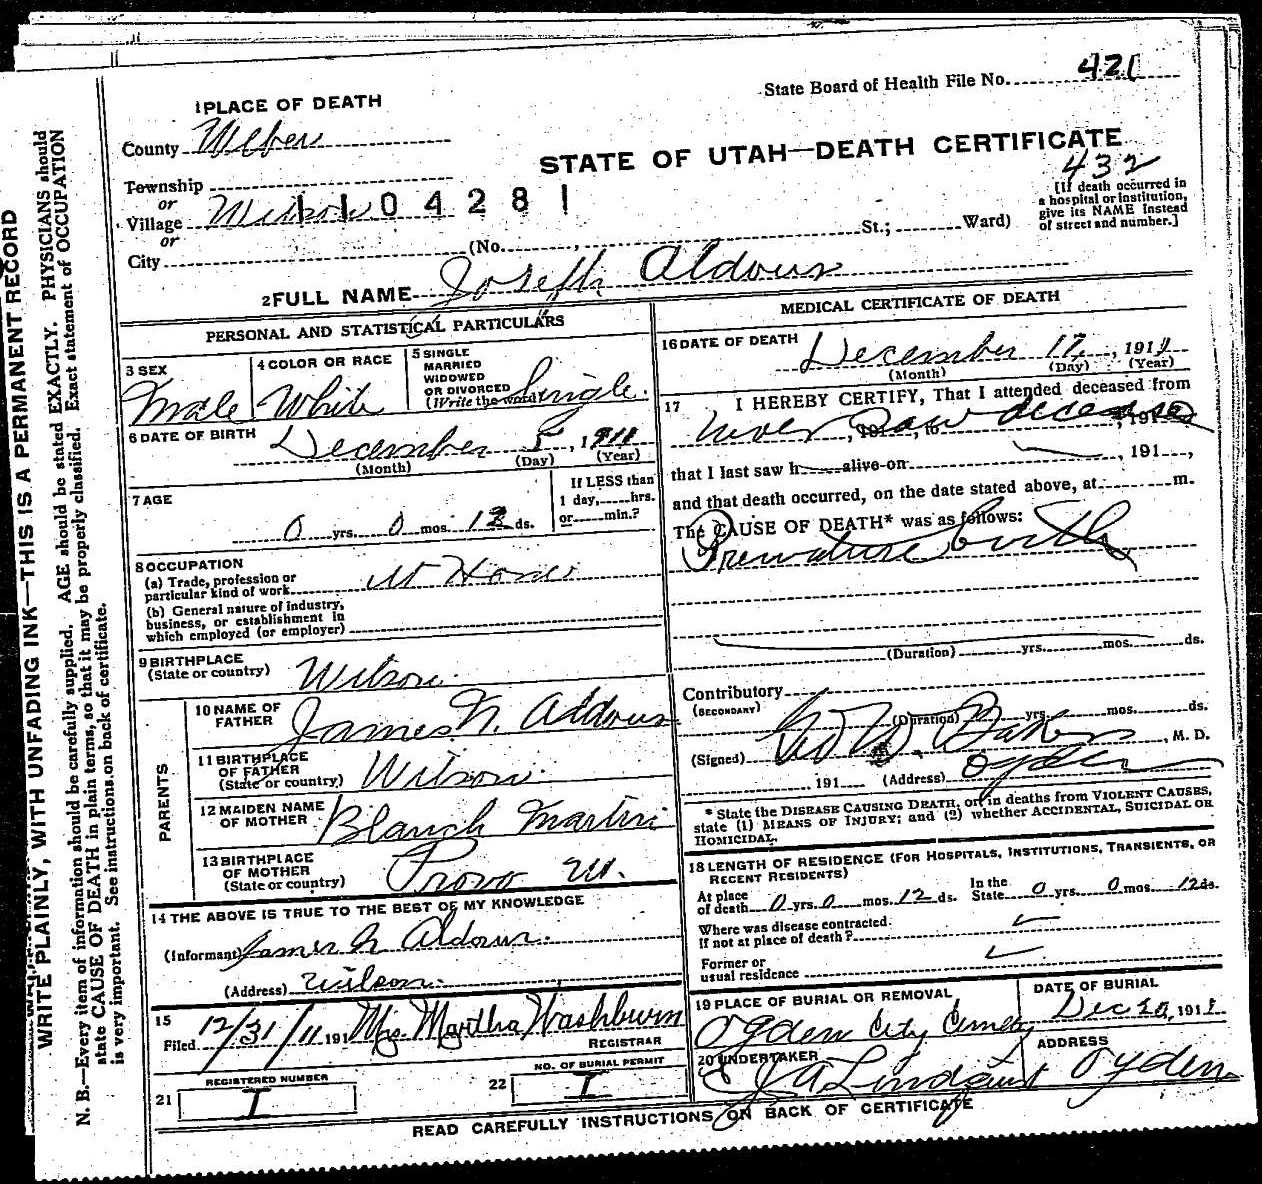 State Board of Health File No. 421
1 PLACE OF DEATH
County Weber
STATE OF UTAH—DEATH CERTIFICATE
432
Township
or
Village Wilson
110428
or
City
(No. , St.; Ward)
[If death occurred in
a hospital or institution,
give its NAME instead
of street and number.]
2 FULL NAME Joseph Aldous
PERSONAL AND STATISTICAL PARTICULARS
3 SEX
Male
4 COLOR OR RACE
White
5 SINGLE
MARRIED
WIDOWED
OR DIVORCED
(Write the word) Single.
6 DATE OF BIRTH
December 5, 1911
(Month) (Day) (Year)
7 AGE
0 yrs. 0 mos. 12 ds.
If LESS than
1 day, hrs.
or min.?
8 OCCUPATION
(a) Trade, profession or
particular kind of work At Home
(b) General nature of industry,
business, or establishment in
which employed (or employer)
9 BIRTHPLACE
(State or country) Wilson.
PARENTS
10 NAME OF
FATHER James N. Aldous
11 BIRTHPLACE
OF FATHER
(State or country) Wilson.
12 MAIDEN NAME
OF MOTHER Blanch Martin
13 BIRTHPLACE
OF MOTHER
(State or country) Provo Ut.
14 THE ABOVE IS TRUE TO THE BEST OF MY KNOWLEDGE
(Informant) James N Aldous.
(Address) Wilson.
15
Filed 12/31/11 191 Mrs Martha Washburn
REGISTRAR
21 REGISTERED NUMBER
I
22 NO. OF BURIAL PERMIT
I
MEDICAL CERTIFICATE OF DEATH
16 DATE OF DEATH
December 17, 1911
(Month) (Day) (Year)
17 I HEREBY CERTIFY, That I attended deceased from
never , 191 , to saw deceased , 191
that I last saw h alive on , 191 ,
and that death occurred, on the date stated above, at m.
The CAUSE OF DEATH* was as follows:
Premature birth
(Duration) yrs. mos. ds.
Contributory
(SECONDARY)
(Duration) yrs. mos. ds.
(Signed) Geo W. Baker , M. D.
191 (Address) Ogden
* State the DISEASE CAUSING DEATH, or, in deaths from VIOLENT CAUSES,
state (1) MEANS OF INJURY; and (2) whether ACCIDENTAL, SUICIDAL OR
HOMICIDAL.
18 LENGTH OF RESIDENCE (FOR HOSPITALS, INSTITUTIONS, TRANSIENTS, OR
RECENT RESIDENTS)
At place
of death 0 yrs. 0 mos. 12 ds.
In the
State 0 yrs. 0 mos. 12 ds.
Where was disease contracted.
If not at place of death?
Former or
usual residence
19 PLACE OF BURIAL OR REMOVAL
Ogden City Cemety
DATE OF BURIAL
Dec 20, 1911
20 UNDERTAKER
J A Lindquist
ADDRESS
Ogden
READ CAREFULLY INSTRUCTIONS ON BACK OF CERTIFICATE
WRITE PLAINLY, WITH UNFADING INK—THIS IS A PERMANENT RECORD
N. B.—Every item of information should be carefully supplied. AGE should be stated EXACTLY. PHYSICIANS should
state CAUSE OF DEATH in plain terms, so that it may be properly classified. Exact statement of OCCUPATION
is very important. See instructions on back of certificate.